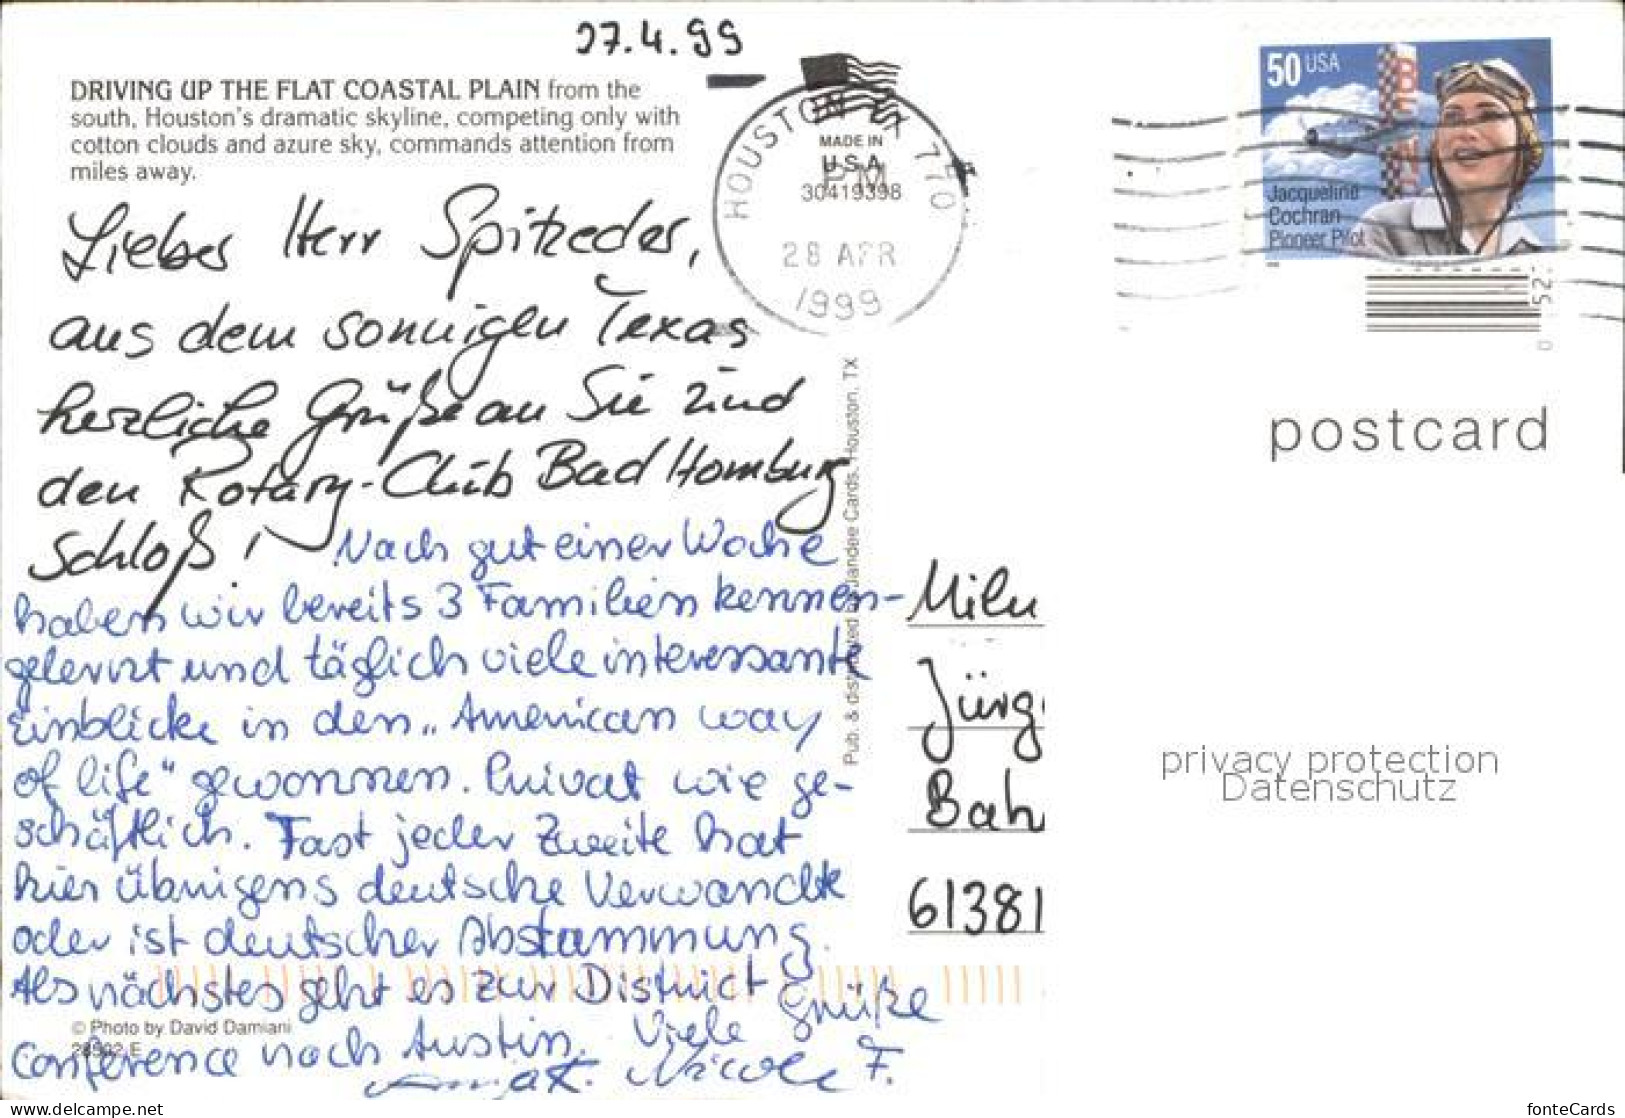 27.4.99
DRIVING UP THE FLAT COASTAL PLAIN from the
south, Houston's dramatic skyline, competing only with
cotton clouds and azure sky, commands attention from
miles away.
HOUSTON TX 770
MADE IN
U.S.A.
PM
30419398
28 APR
1999
50 USA
Jacqueline
Cochran
Pioneer Pilot
Lieber Herr Spitzeder,
aus dem sonnigen Texas
herzliche Grüße an Sie und
den Rotary-Club Bad Homburg
Schloß! Nach gut einer Woche
haben wir bereits 3 Familien kennen-
gelernt und täglich viele interessante
Einblicke in den „American way
of life“ gewonnen. Privat wie ge-
schäftlich. Fast jeder Zweite hat
hier übrigens deutsche Verwandte
oder ist deutscher Abstammung.
Als nächstes geht es zur District
Conference nach Austin. Viele Grüße
Nicole F.
© Photo by David Damiani
Pub. & distributed Jandee Cards, Houston, TX
postcard
Jürg
Bah
61381
privacy protection
Datenschutz
delcampe.net
fonteCards